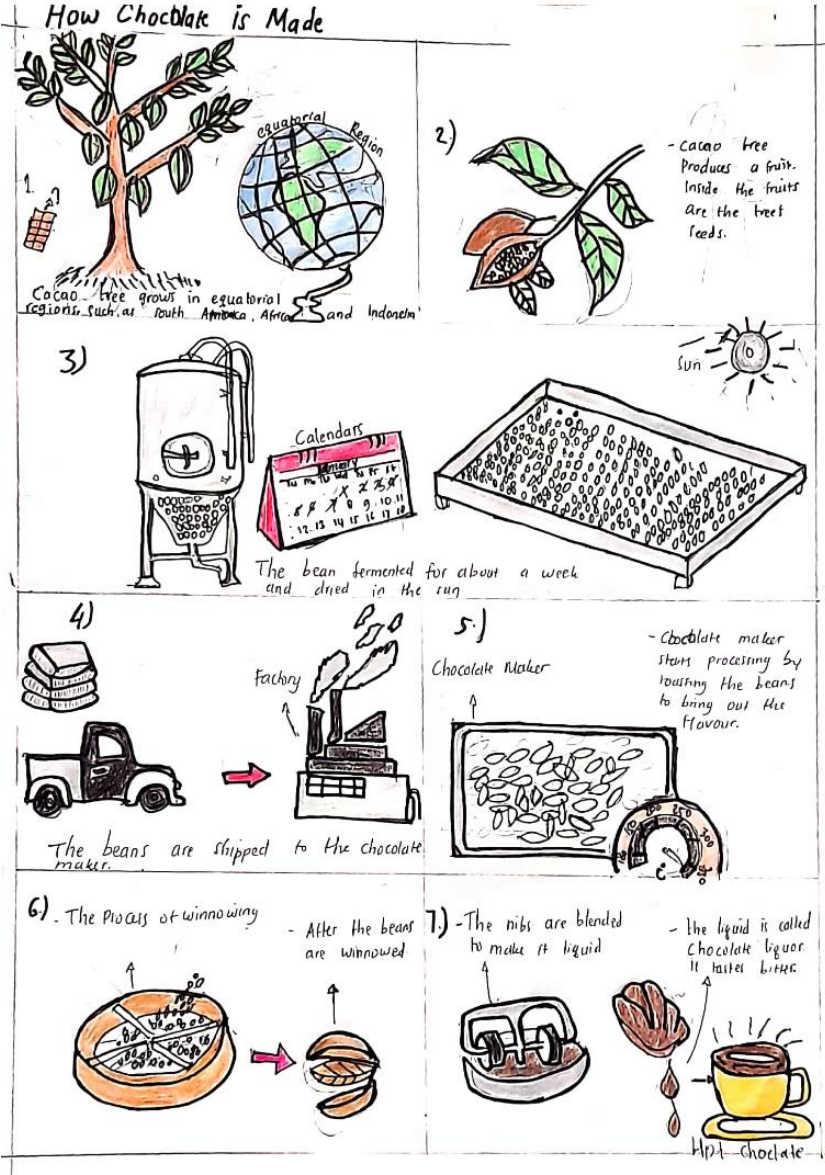 How Chocolate is Made
1.
equatorial Region
Cacao tree grows in equatorial
regions, such as South America, Africa and Indonesia
2.)
- Cacao tree
Produces a fruit.
Inside the fruits
are the tree's
seeds.
3)
Calendars
January
Sun
The bean fermented for about a week
and dried in the sun
4)
Factory
The beans are shipped to the chocolate
maker.
5.)
Chocolate Maker
- Chocolate maker
starts processing by
roasting the beans
to bring out the
flavour.
200 250 300
6.) - The Process of winnowing
- After the beans
are winnowed
7.) - The nibs are blended
to make it liquid
- the liquid is called
Chocolate liquor.
It tastes bitter.
Hot Choclate